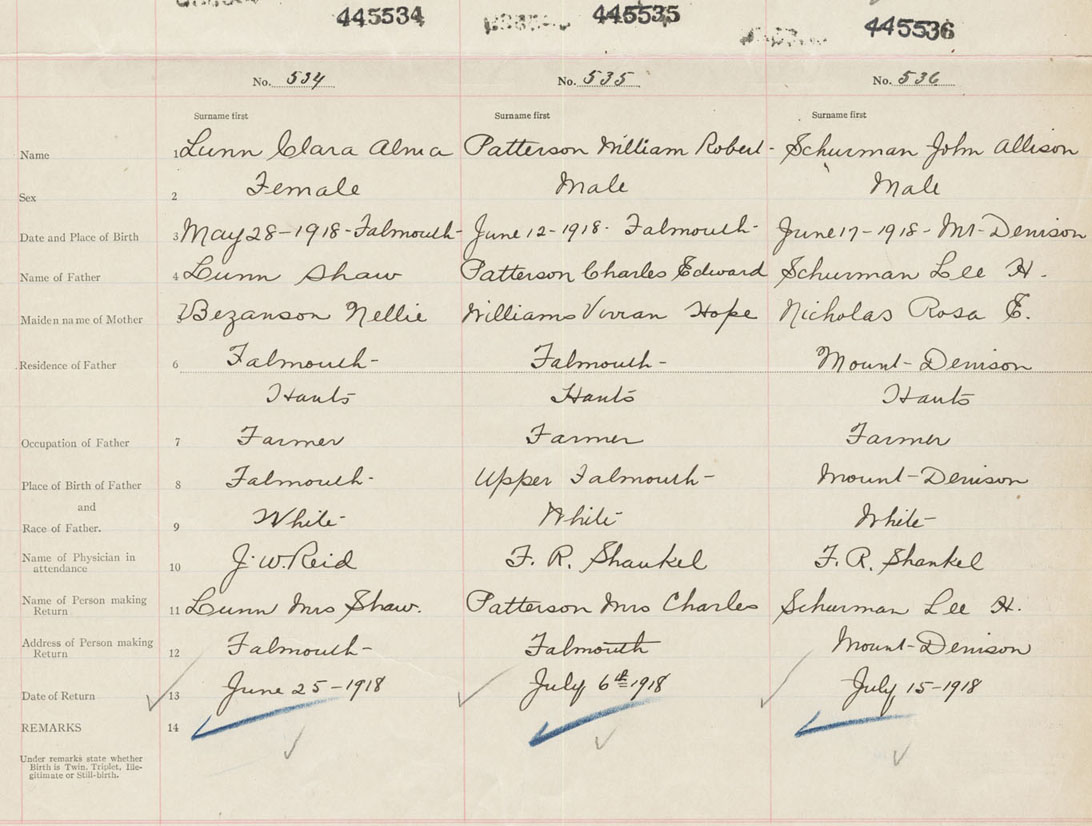 445534 445535 445536
No. 534 No. 535 No. 536
Surname first Surname first Surname first
Name 1 Lunn Clara Alma Patterson William Robert- Schurman John Allison
Sex 2 Female Male Male
Date and Place of Birth 3 May 28-1918-Falmouth- June 12-1918- Falmouth- June 17-1918-Mt-Denison
Name of Father 4 Lunn Shaw Patterson Charles Edward Schurman Lee H.
Maiden name of Mother 5 Bezanson Nellie Williams Vivian Hope Nicholas Rosa E.
Residence of Father 6 Falmouth- Falmouth- Mount-Denison
Hants Hants Hants
Occupation of Father 7 Farmer Farmer Farmer
Place of Birth of Father 8 Falmouth- Upper Falmouth- Mount-Denison
and
Race of Father. 9 White White White
Name of Physician in
attendance 10 J.W. Reid F. R. Shankel F. R. Shankel
Name of Person making
Return 11 Lunn Mrs Shaw. Patterson Mrs Charles Schurman Lee H.
Address of Person making
Return 12 Falmouth- Falmouth Mount-Denison
Date of Return 13 June 25-1918 July 6th 1918 July 15-1918
REMARKS 14
Under remarks state whether
Birth is Twin, Triplet, Ille-
gitimate or Still-birth.